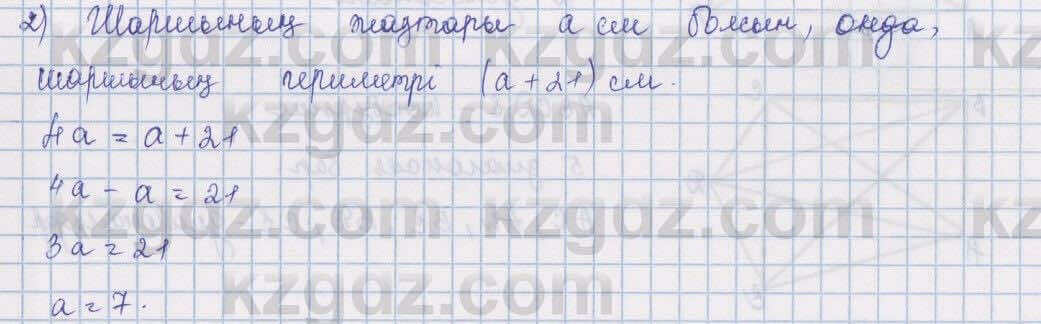 2) Шаршының жақтары a см болсын, онда,
шаршының периметрі (a + 21) см.
4a = a + 21
4a - a = 21
3a = 21
a = 7.
kzgdz.com
kzgdz.com
kzgdz.com
kzgdz.com